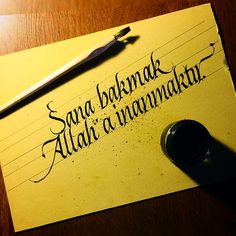 Sana bakmak
Allah'a inanmaktır.